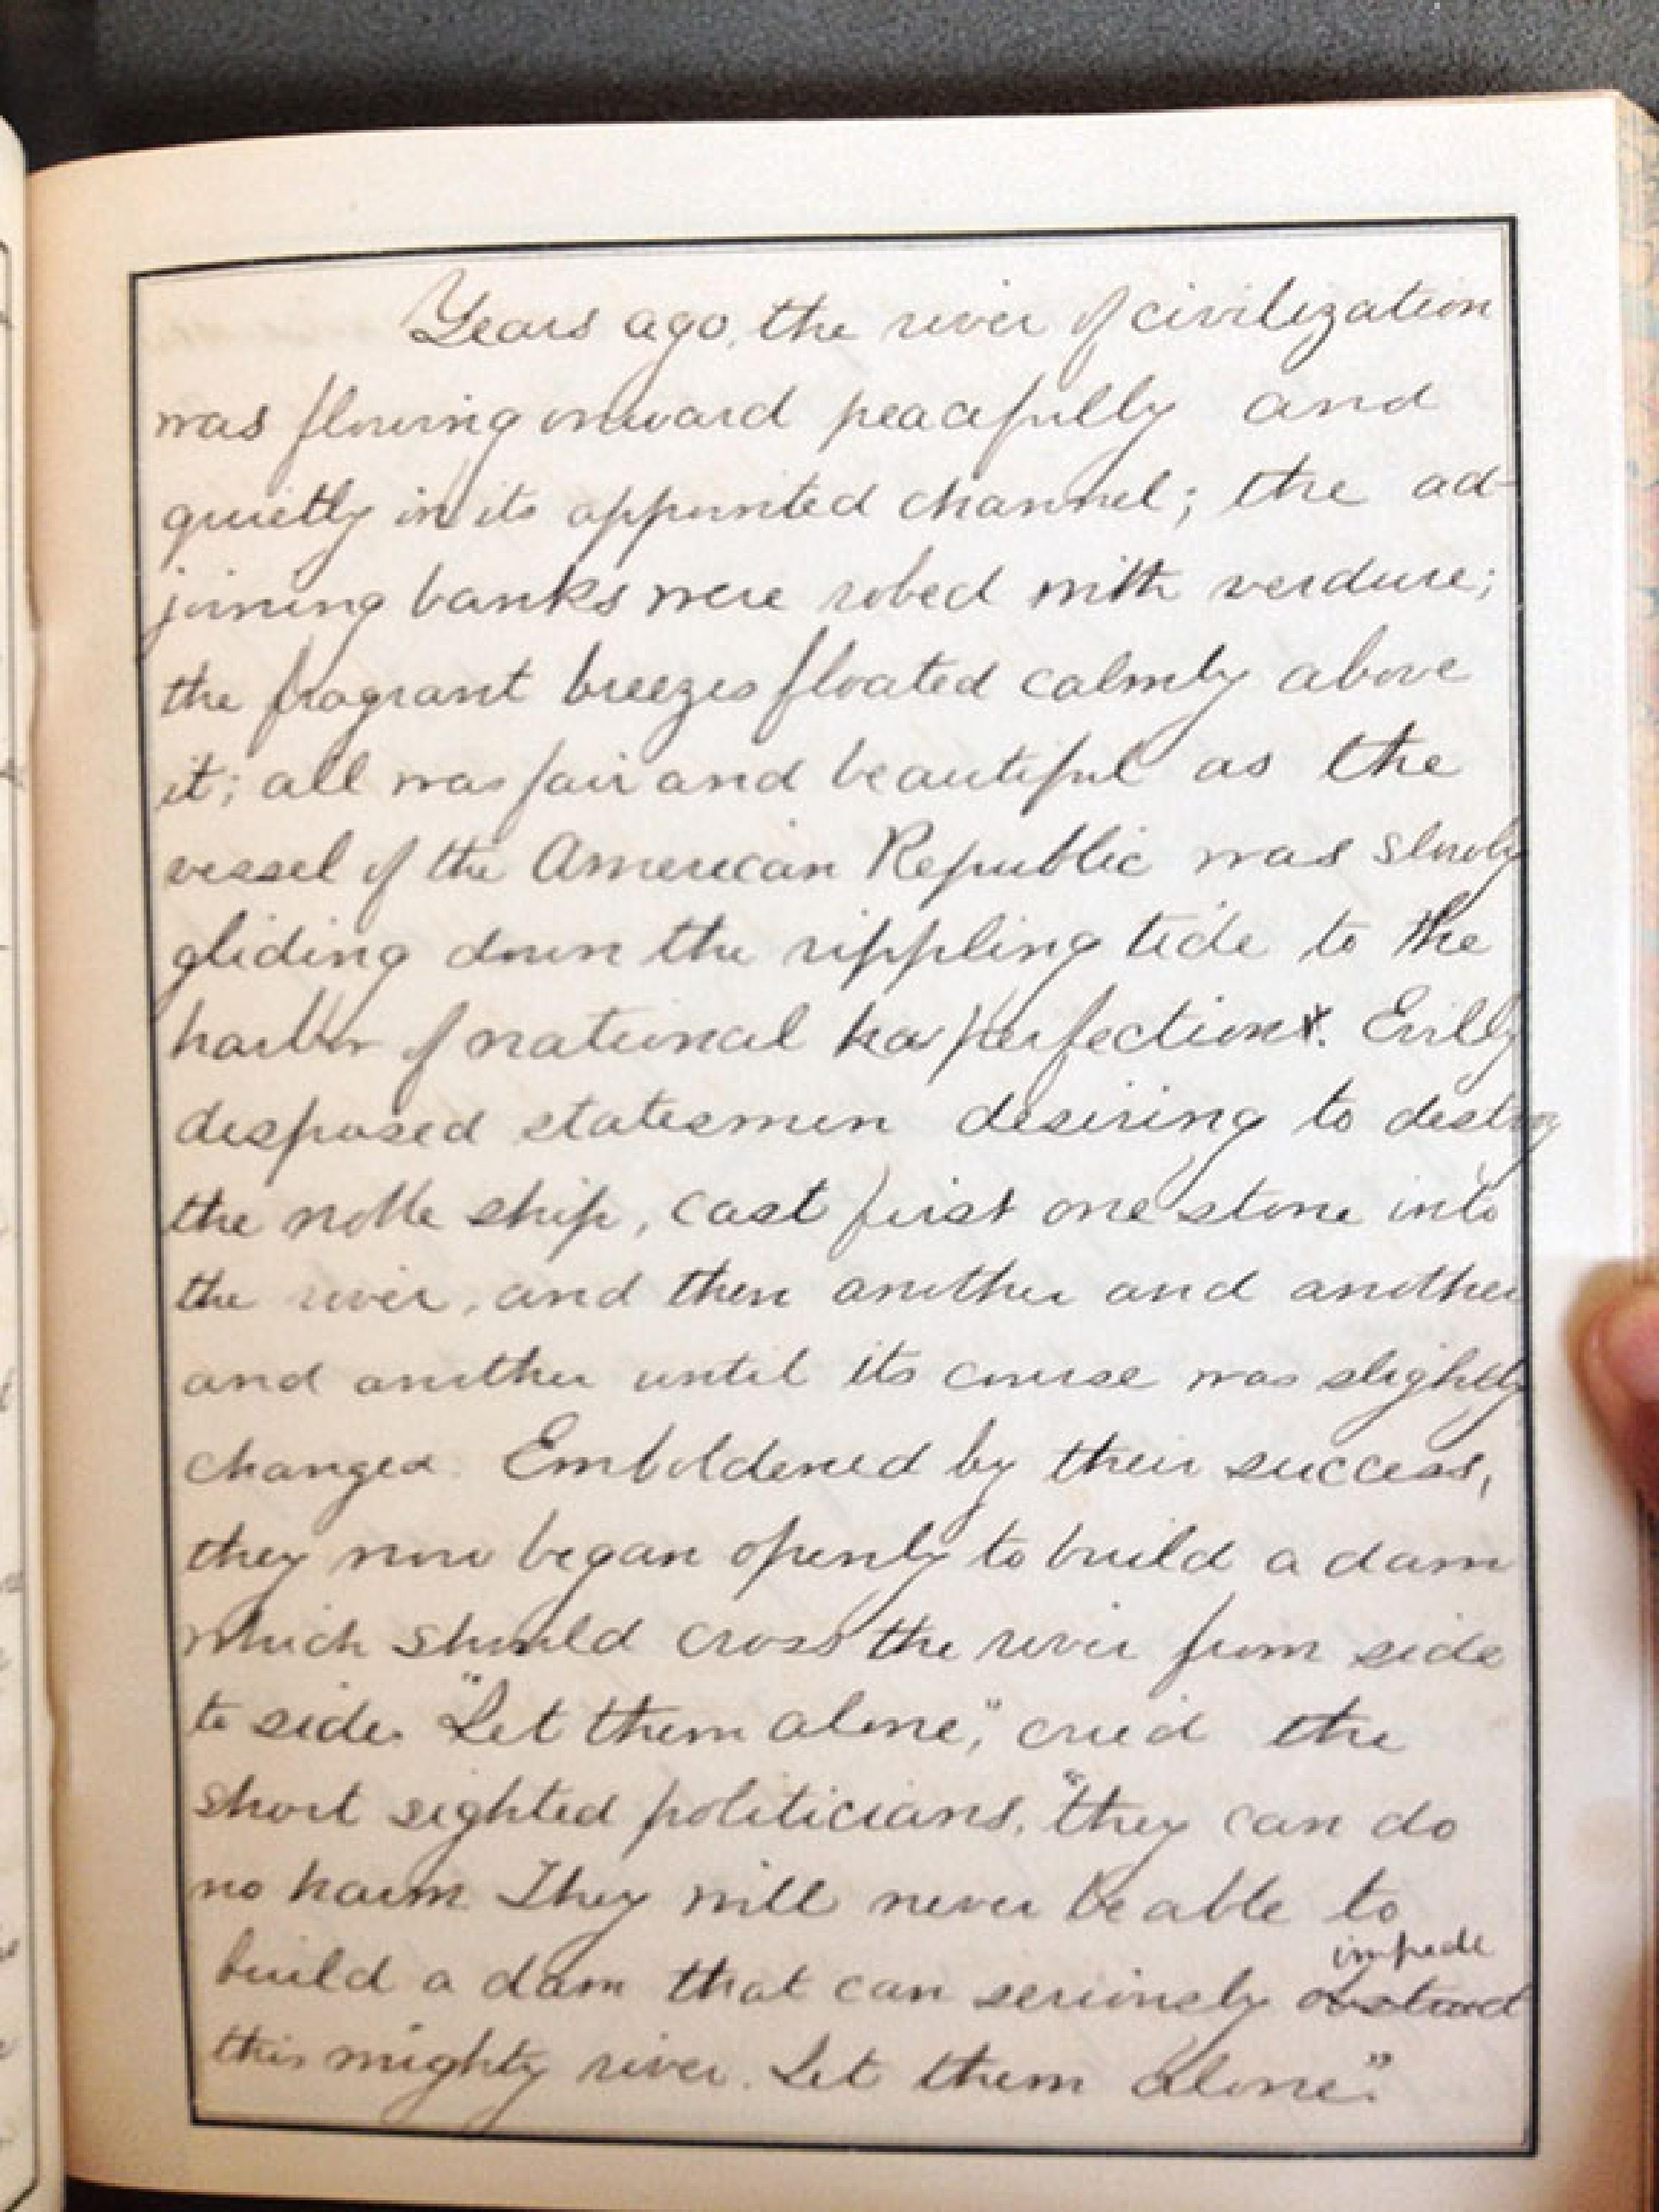 Years ago, the river of civilization
was flowing onward peacefully and
quietly in its appointed channel; the ad-
joining banks were robed with verdure;
the fragrant breezes floated calmly above
it; all was fair and beautiful as the
vessel of the American Republic was slowly
gliding down the rippling tide to the
harbor of national ha perfection. Evilly
disposed statesmen desiring to destroy
the noble ship, cast first one stone into
the river, and then another and another
and another until its course was slightly
changed. Emboldened by their success,
they now began openly to build a dam
which should cross the river from side
to side. "Let them alone," cried the
short sighted politicians, "they can do
no harm. They will never be able to
impede
build a dam that can seriously obstruct
this mighty river. Let them alone."